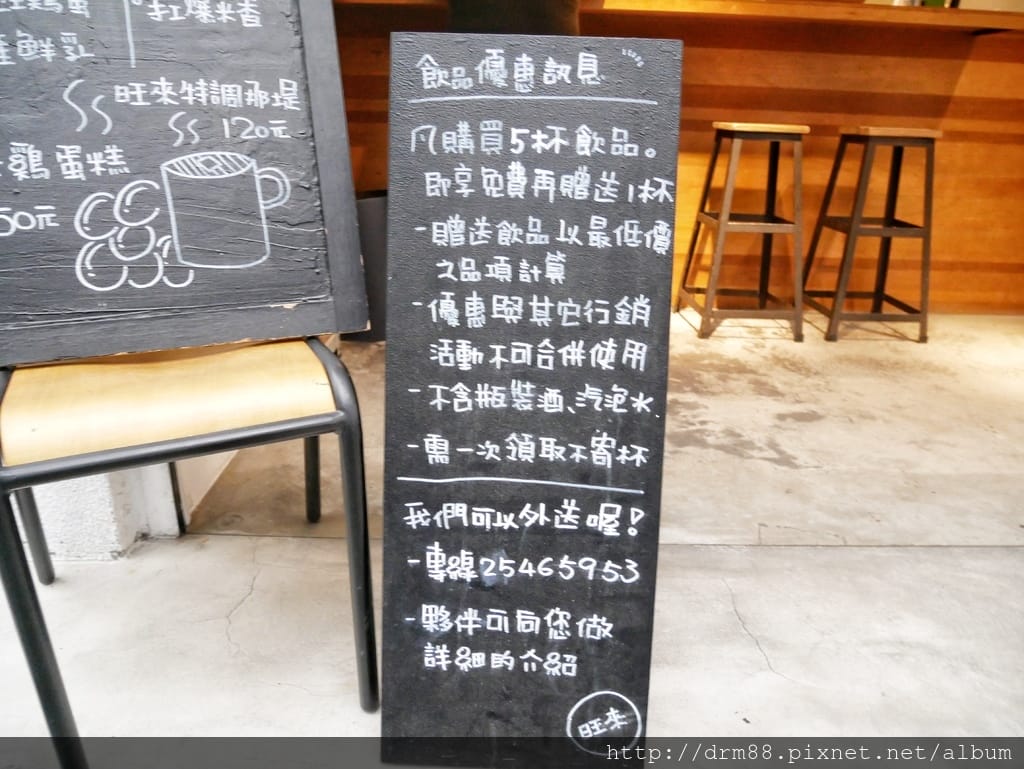 打爆米香
鮮乳
旺來特調那堤
120元
鷄蛋糕
50元
飲品優惠訊息
凡購買5杯飲品。
即享免費再贈送1杯
-贈送飲品以最低價
之品項計算
-優惠與其它行銷
活動不可合併使用
-不含瓶裝酒、汽泡水.
-需一次領取不寄杯
我們可以外送喔!
-專線25465953
-夥伴可向您做
詳細的介紹
旺來
http://drm88.pixnet.net/album